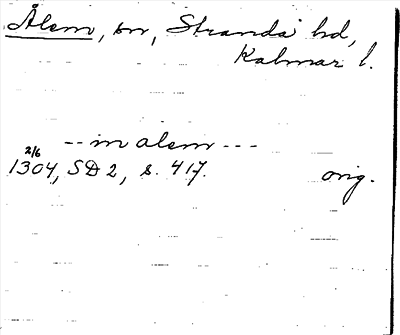 Ålem, sn, Stranda hd,
Kalmar l.
-- in alem ---
2/6
1304, SD 2, s. 417. orig.